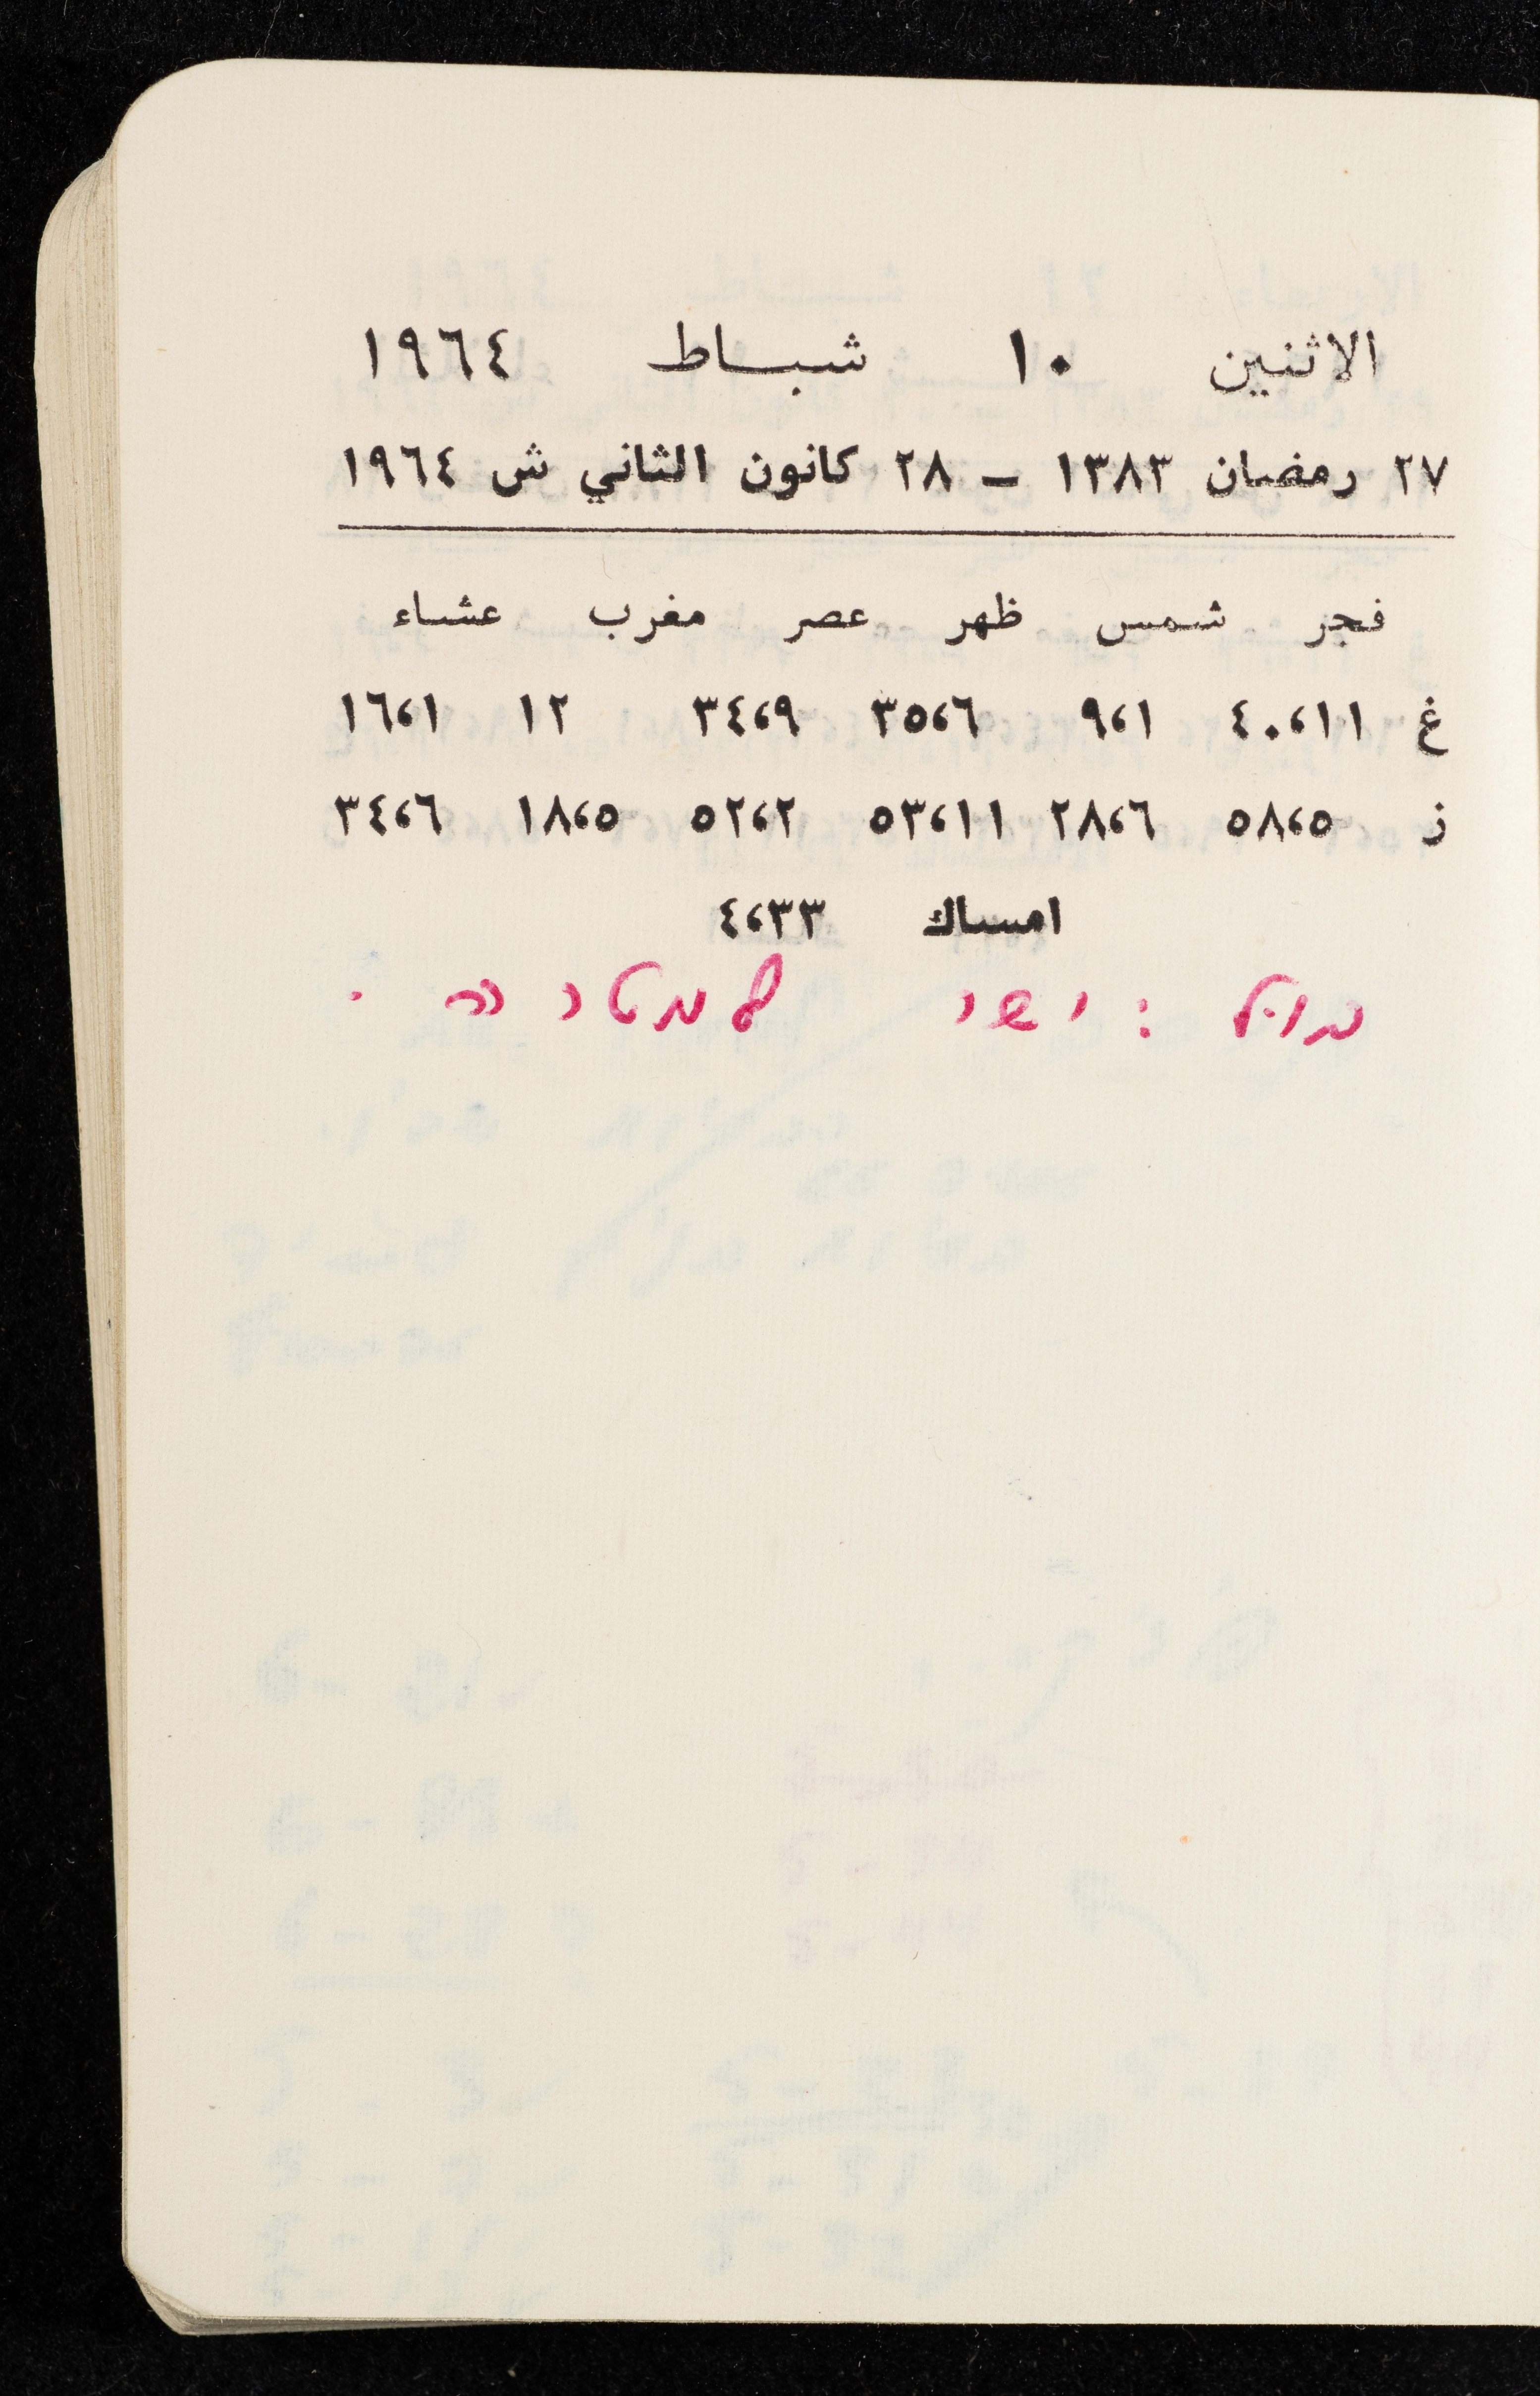 الاثنين ١٠ شباط ١٩٦٤
٢٧ رمضان ١٣٨٣ – ٢٨ كانون الثاني ش ١٩٦٤
فجر شمس ظهر عصر مغرب عشاء
غ ٤٠،١١ ٩،١ ٣٥،٦ ٣٤،٩ ١٢ ١٦،١
ز ٥٨،٥ ٢٨،٦ ٥٣،١١ ٥٢،٢ ١٨،٥ ٣٤،٦
امساك ٤،٣٣